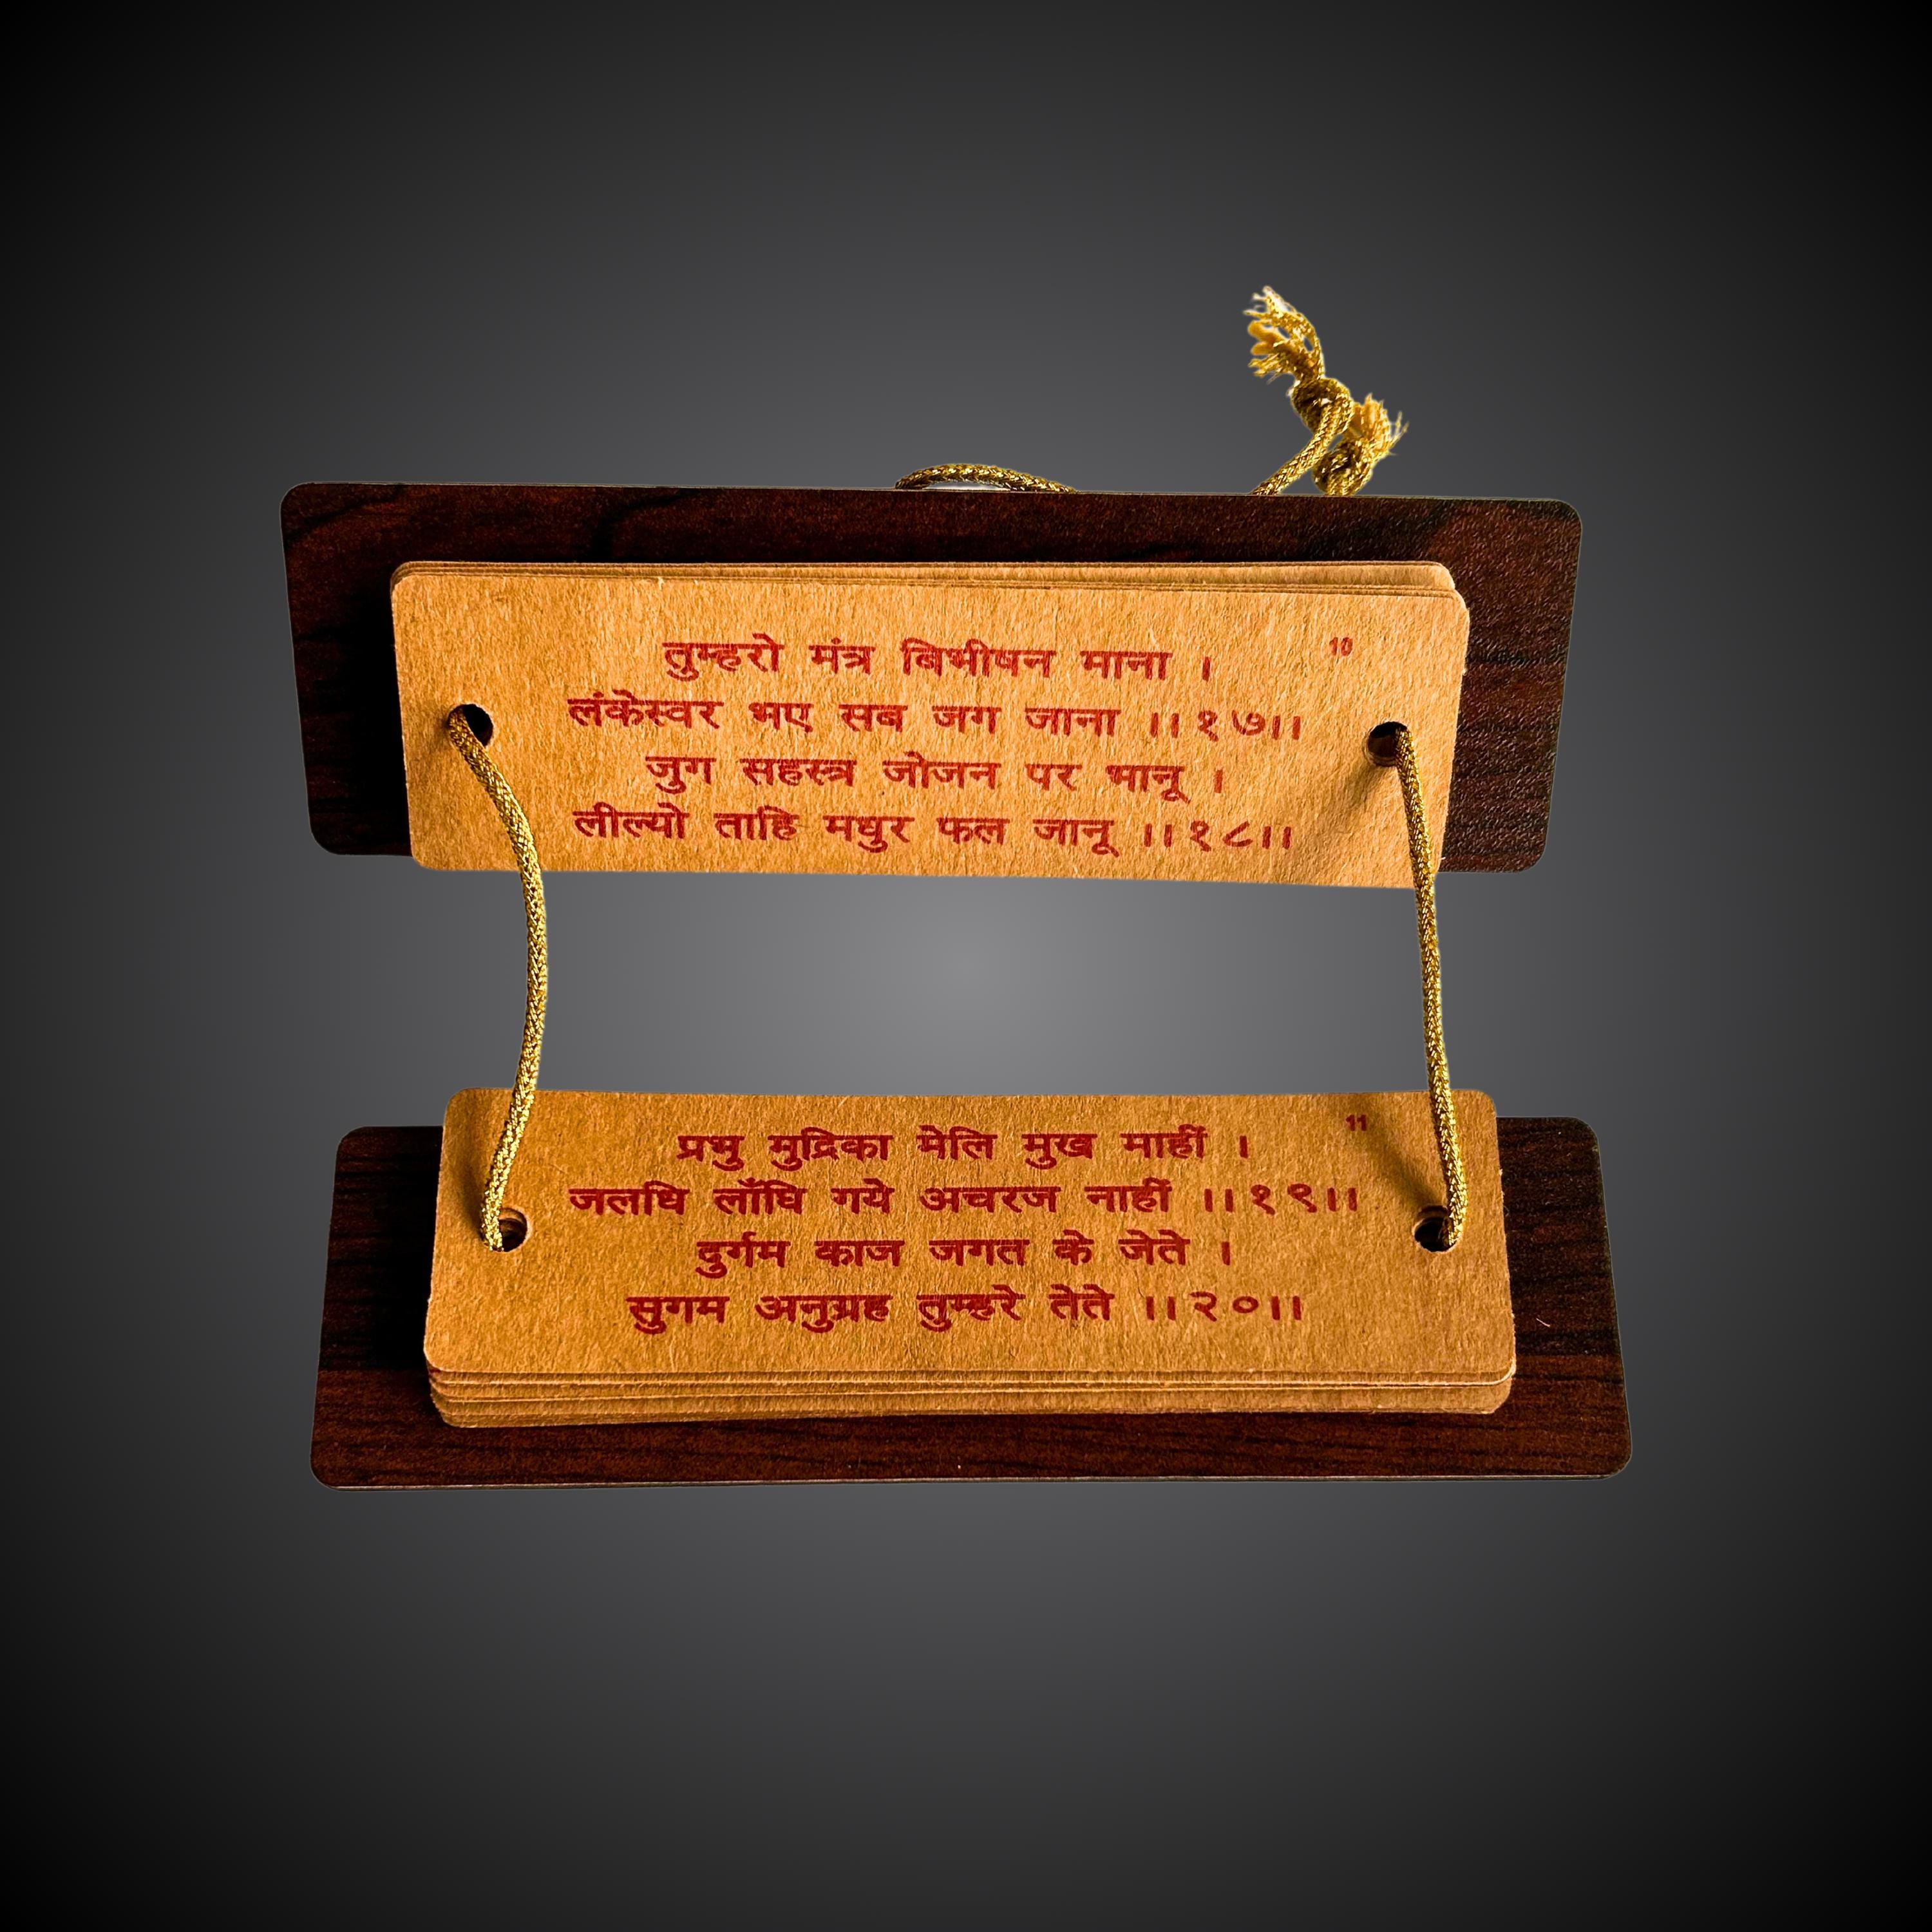 10
तुम्हरो मंत्र बिभीषन माना ।
लंकेस्वर भए सब जग जाना ।।१७।।
जुग सहस्त्र जोजन पर भानू ।
लील्यो ताहि मधुर फल जानू ।।१८।।
11
प्रभु मुद्रिका मेलि मुख माहीं ।
जलधि लाँघि गये अचरज नाहीं ।।१९।।
दुर्गम काज जगत के जेते ।
सुगम अनुग्रह तुम्हरे तेते ।।२०।।